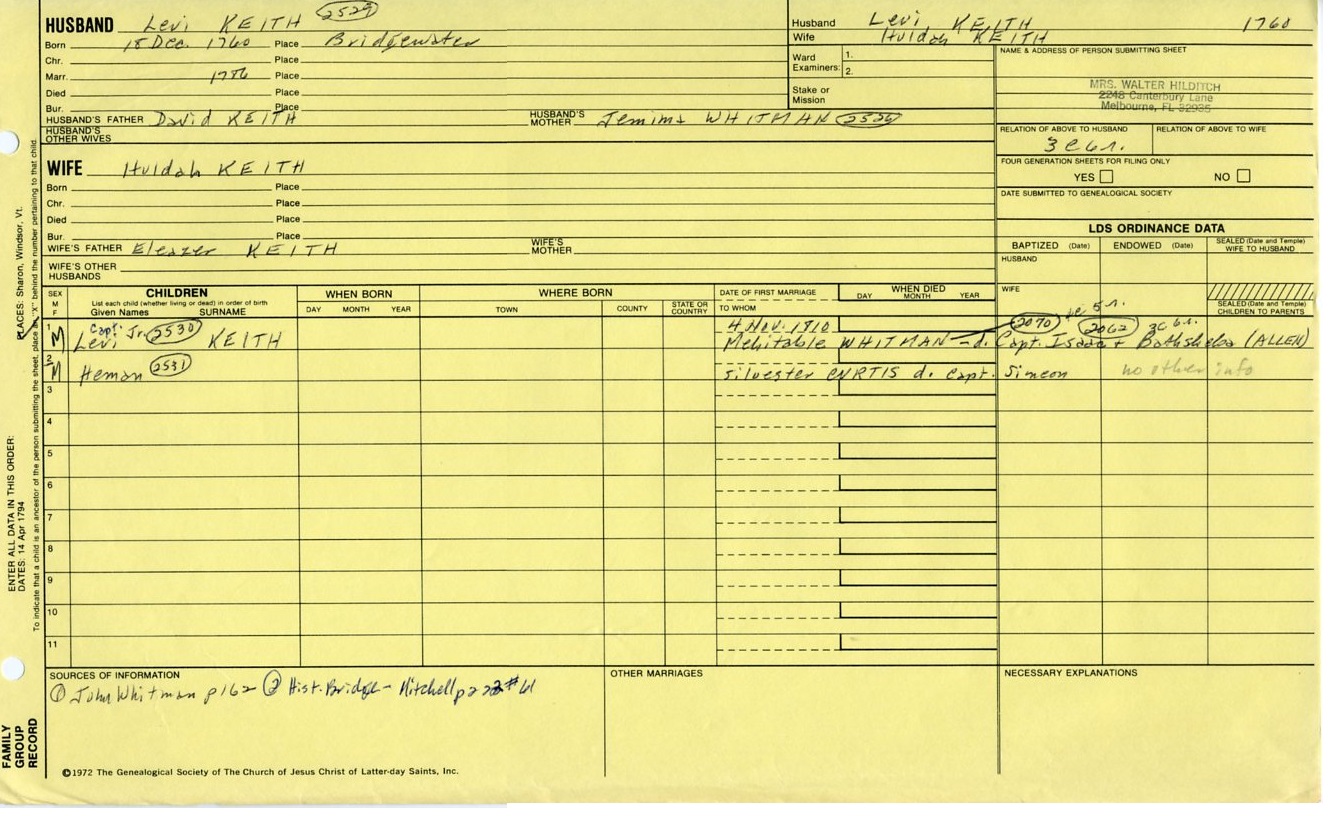 HUSBAND Levi KEITH 2529
Born 18 Dec. 1760 Place Bridgewater
Chr. Place
Marr. 1786 Place
Died Place
Bur. Place
HUSBAND'S FATHER David KEITH HUSBAND'S MOTHER Jemima WHITMAN 2526
HUSBAND'S OTHER WIVES
Husband Levi KEITH 1760
Wife Huldah KEITH
Ward Examiners: 1.
2.
Stake or Mission
NAME & ADDRESS OF PERSON SUBMITTING SHEET
MRS. WALTER HILDITCH
2248 Canterbury Lane
Melbourne, FL 32935
RELATION OF ABOVE TO HUSBAND RELATION OF ABOVE TO WIFE
3c6r.
FOUR GENERATION SHEETS FOR FILING ONLY
YES NO
DATE SUBMITTED TO GENEALOGICAL SOCIETY
WIFE Huldah KEITH
Born Place
Chr. Place
Died Place
Bur. Place
WIFE'S FATHER Eleazer KEITH WIFE'S MOTHER
WIFE'S OTHER HUSBANDS
LDS ORDINANCE DATA
BAPTIZED (Date) ENDOWED (Date) SEALED (Date and Temple) WIFE TO HUSBAND
HUSBAND
WIFE
SEALED (Date and Temple) CHILDREN TO PARENTS
SEX M F
CHILDREN
List each child (whether living or dead) in order of birth
Given Names SURNAME
WHEN BORN
DAY MONTH YEAR
WHERE BORN
TOWN COUNTY STATE OR COUNTRY
DATE OF FIRST MARRIAGE
TO WHOM
WHEN DIED
DAY MONTH YEAR
1 M Capt. Levi Jr. 2530 KEITH 4 Nov. 1810
Mehitable WHITMAN - d. Capt. Isaac + Bathsheba (ALLEN)
2070 4c5r. 2062 3c6r.
2 M Heman 2531 Silvester CURTIS d. Capt. Simeon no other info
3
4
5
6
7
8
9
10
11
SOURCES OF INFORMATION
① John Whitman p162 ② Hist. Bridge - Mitchell p222 #61
OTHER MARRIAGES
NECESSARY EXPLANATIONS
©1972 The Genealogical Society of The Church of Jesus Christ of Latter-day Saints, Inc.
FAMILY GROUP RECORD
ENTER ALL DATA IN THIS ORDER:
DATES: 14 Apr 1794
PLACES: Sharon, Windsor, Vt.
To indicate that a child is an ancestor of the person submitting the sheet, place an "X" behind the number pertaining to that child.